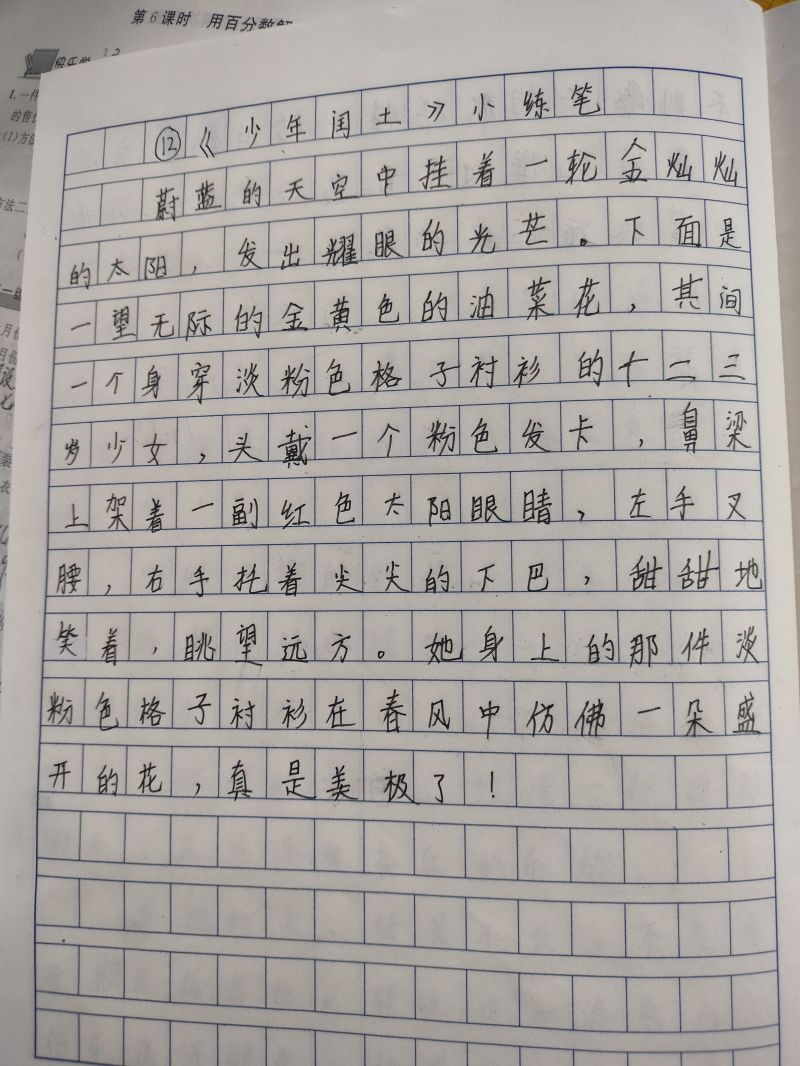 第6课时 用百分数解
快乐学
1.一件
的售价
(1)方法
方法二
⑫《少年闰土》小练笔
蔚蓝的天空中挂着一轮金灿灿
的太阳，发出耀眼的光芒。下面是
一望无际的金黄色的油菜花，其间
一个身穿淡粉色格子衬衫的十二三
岁少女，头戴一个粉色发卡，鼻梁
上架着一副红色太阳眼睛，左手叉
腰，右手托着尖尖的下巴，甜甜地
笑着，眺望远方。她身上的那件淡
粉色格子衬衫在春风中仿佛一朵盛
开的花，真是美极了！